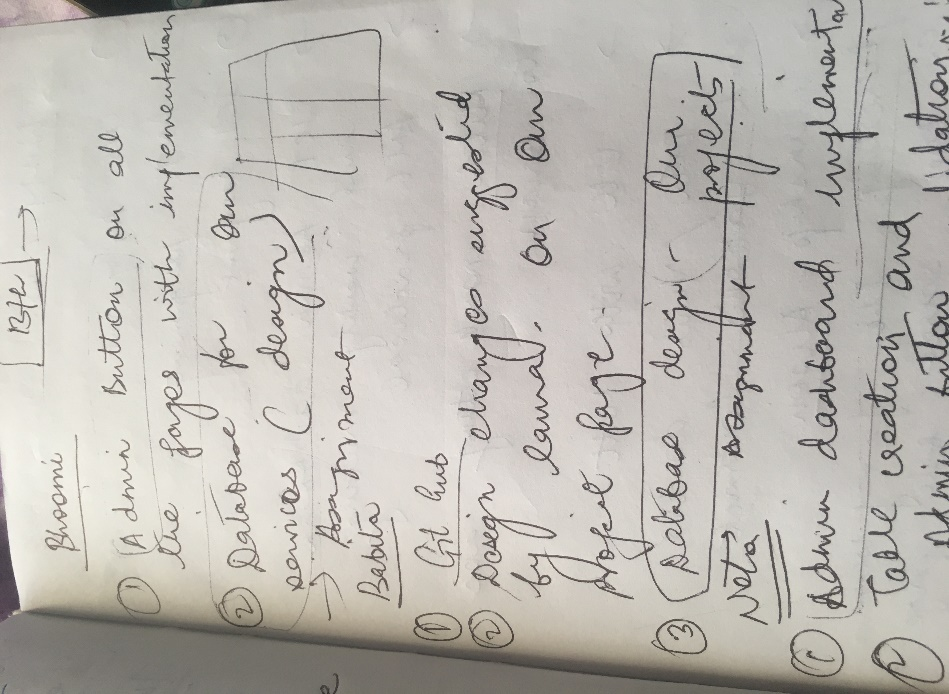 Bhoomi
① Admin Button on all
the pages with implementation
② Database for our
services (design)
→ Assignment
Babita
① Git hub
② Design changes suggested
by kamal. on our
project page
③ Database design - Our
assignment projects
Neta
① Admin dashboard
② Table creation and
Admin button